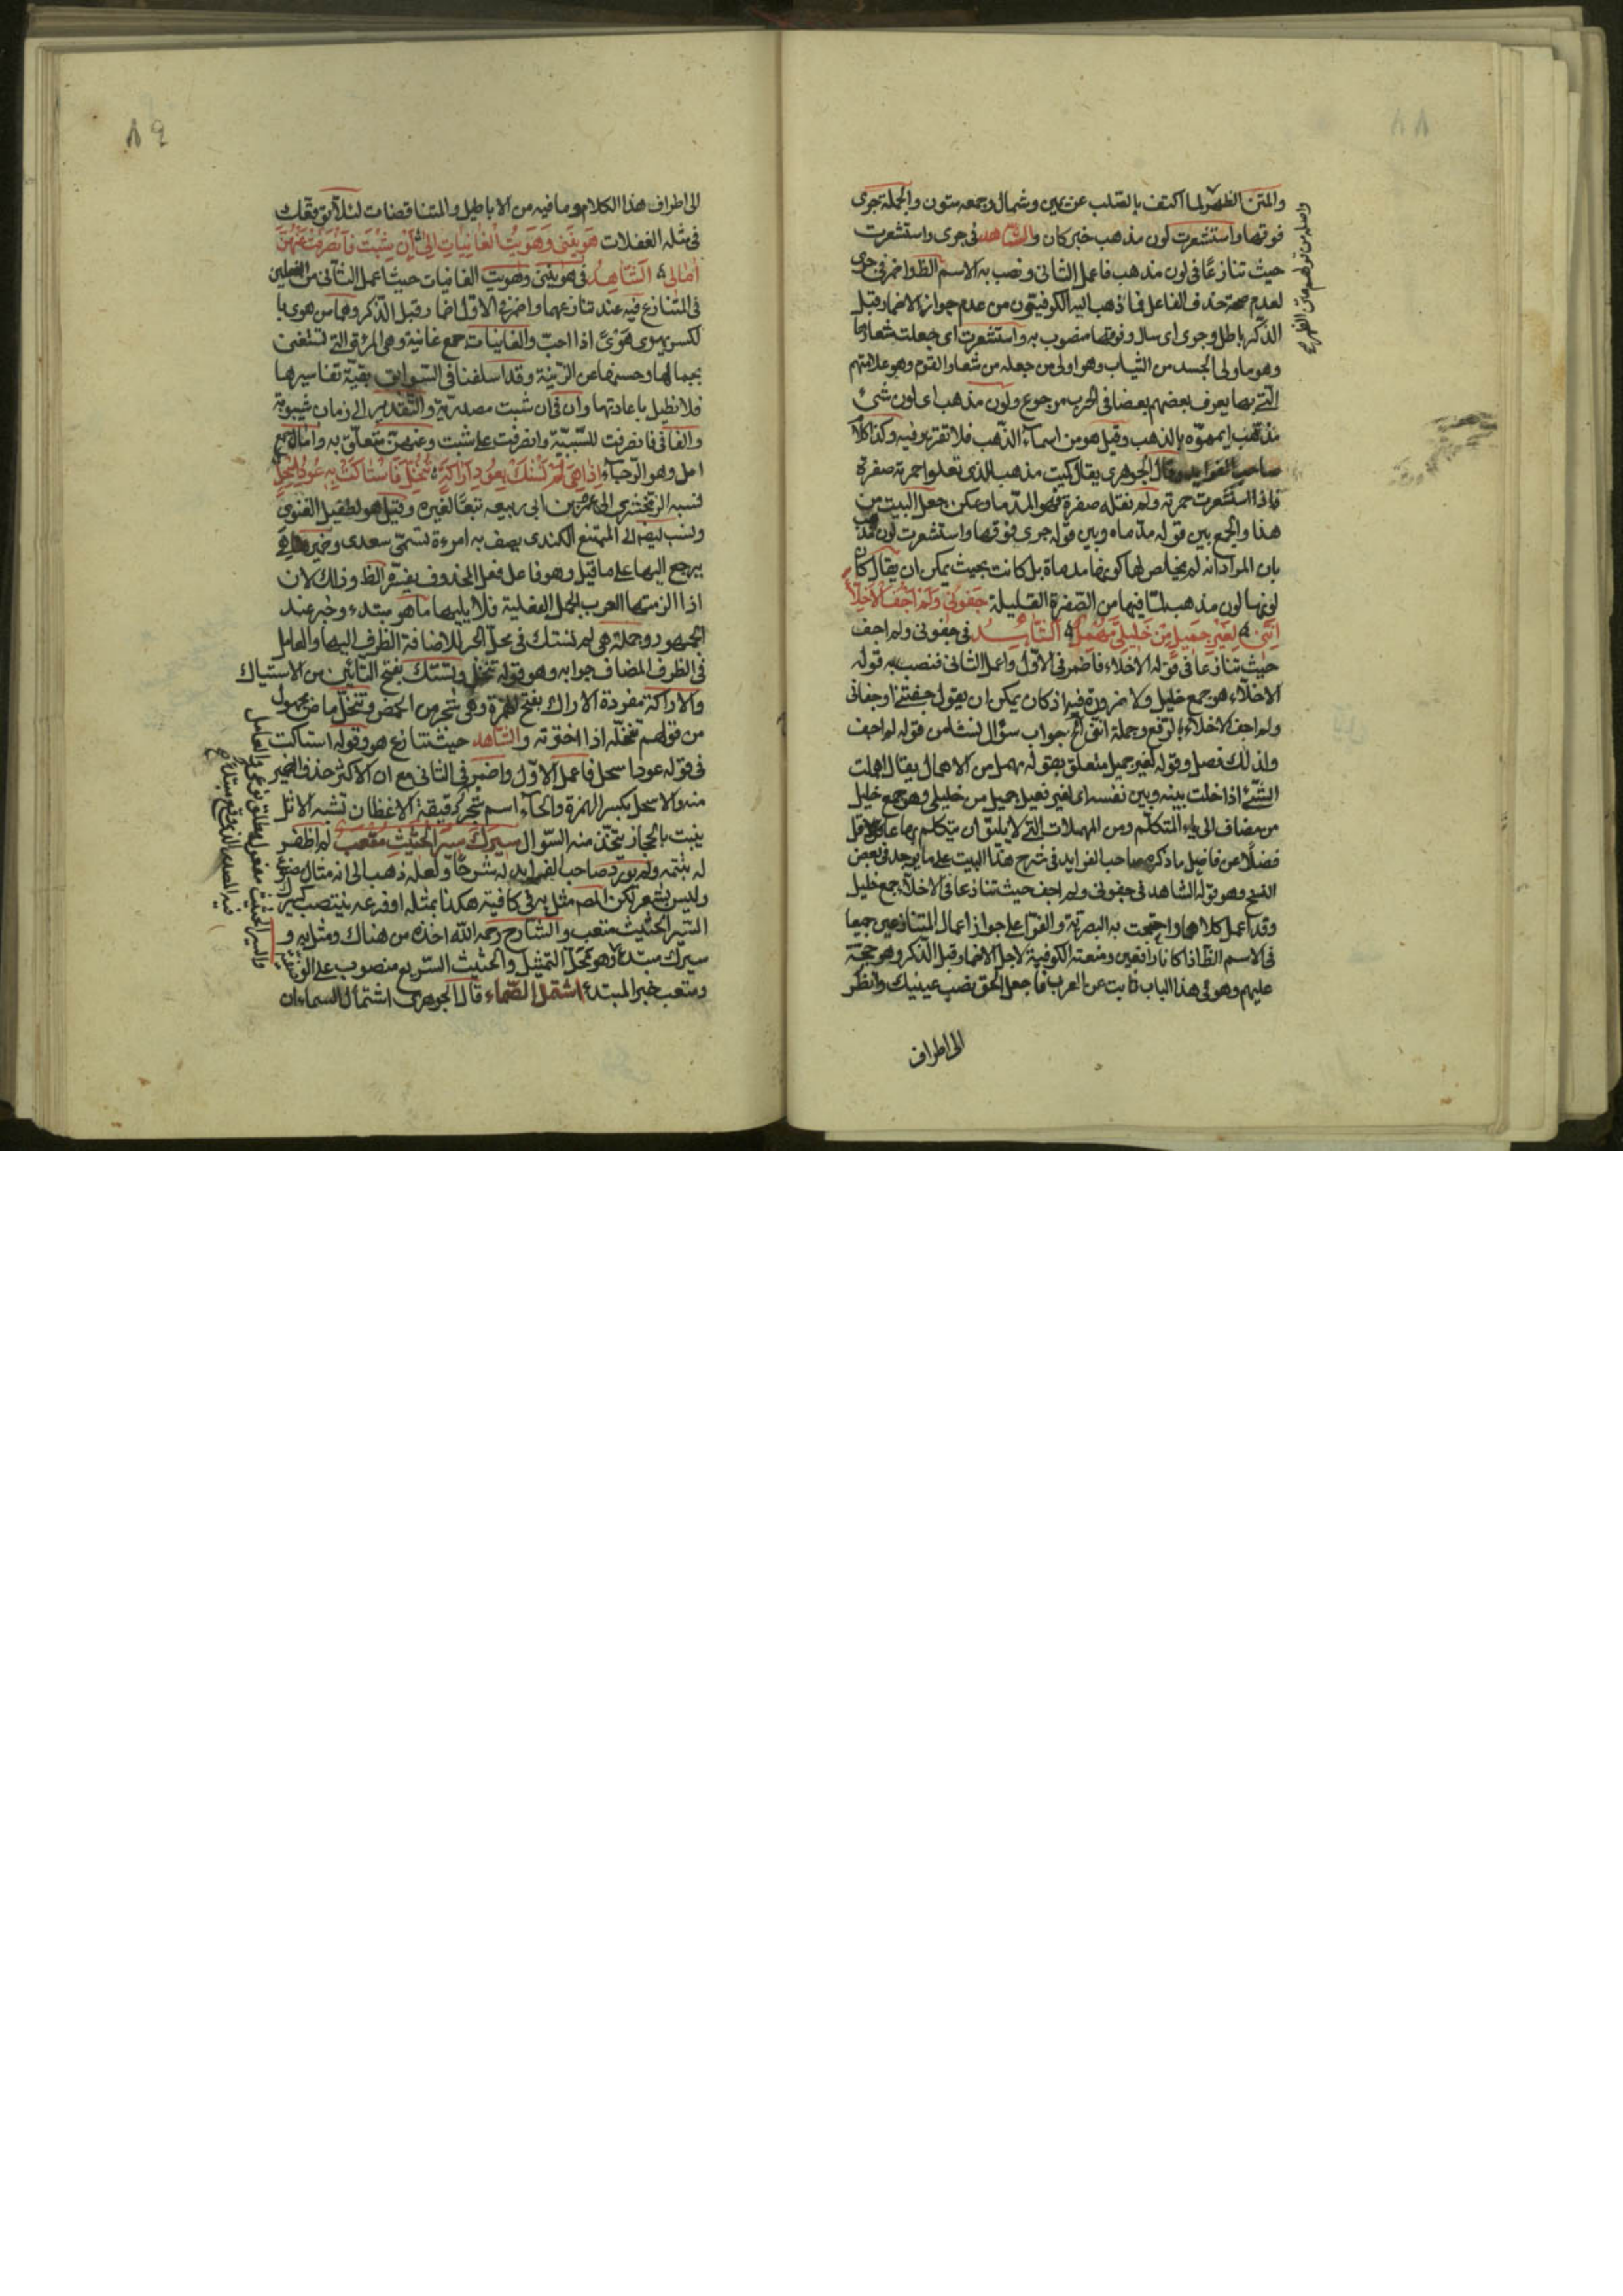 ٨٨
والمتن الظهر لما اكتنف بالصّلب عن يمين وشمال وجمعه متون والجملة جرى
فوقها واستشعرت لون مذهب خبر كان والشّاهد فى جرى واستشعرت
حيث تنازعا فى لون مذهب فاعمل الثانى ونصب به الاسم الظ واضمر فى جرى
لعدم صحة حذف الفاعل فما ذهب اليه الكوفيّون من عدم جواز الاضمار قبل
الذّكر باطل وجرى اى سال وفوقها منصوب به واستشعرت اى جعلت شعارها
وهو ما ولى الجسد من الثياب وهو اولى من جعله من شعار القوم وهو علامتهم
الّتى بها يعرف بعضهم بعضا فى الحرب ولون مذهب اى لون شئ
مذهّب اى مموّه بالذهب وقيل هو من اسماء الذّهب فلا تقرير فيه وكذا كلام
صاحب الفوايد وقال الجوهرى يقال كميت مذهب للذى تعلو احمرته صفرة
فاذا اشتدّت حمرته ولم تعله صفرة فهو المدمّا ويمكن جعل البيت من
هذا والجمع بين قوله مدماه وبين قوله جرى فوقها واستشعرت لون مذهب
بان المراد انه لم يخلص لها كونها مدماة بل كانت بحيث يمكن ان يقال كان
لونها لون مذهب لما فيها من الصّفرة القليلة جَفَونى وَلَمْ اَجْفُ الاَخِلاّءَ
اِنَّنى لِغَيْرِ جَميلٍ مِنْ خَليلِىَ مُهْمِلُ الشّاهِدُ فى جفونى ولم اجف
حيث تنازعا فى قوله الاخلاء فاضمر فى الاوّل واعمل الثانى فنصب به قوله
الاخلّاء هو جمع خليل ولا ضرورة فيه اذ كان يمكن ان يقول جفتنى او جفانى
ولم اجف الاخلاّء بالرّفع وجملة اننى الخ جواب سؤال نشا من قوله لم اجف
ولذلك فصل وقوله لغير جميل متعلق بقوله مهمل من الاهمال يقال اهملت
الشّئ اذا خلت بينه وبين نفسه اى لغير فعيل جميل من خليلى وهو جمع خليل
من مضاف الى ياء المتكلّم ومن المهملات الّتى لا يليق ان يتكلم بها عاقل
فضلًا عن فاضل ما ذكره صاحب الفوايد فى شرح هذا البيت على ما يوجد فى بعض
النسخ وهو قوله الشاهد فى جفونى ولم اجف حيث تنازعا فى الاخلّاء جمع خليل
وقد اعمل كلاهما واحتجت به البصريّة والفرّا على جواز اعمال المتنازعين جميعا
فى الاسم الظ اذا كانا رافعين ومنعته الكوفية لاجل الاضمار قبل الذّكر وهو حجّة
عليهم وهو فى هذا الباب ثابت عن العرب فاجعل الحق نصب عينيك وانظر
الى اطراف
٨٩
الى اطراف هذا الكلام وما فيه من الاباطيل والمتناقضات لئلّا يوقعك
فى مثله الغفلات هَوَيْنَنى وَهَوَيْتُ الْغانِياتِ اِلى اَنْ شِبْتُ فَانْصَرَفَتْ عَنْهُنَّ
امالى الشّاهِدُ فى هويننى وهويت الغانيات حيث اعمل الثّانى من الفعلين
فى المتنازع فيه عند تنازعهما واضمر فى الاوّل اضمار قبل الذّكر وهما من هوى با
لكسر يهوى هوًى اذا احبّ والغانيات جمع غانية وهى المرئة الّتى تستغنى
بجمالها وحسنها عن الزّينة وقد اسلفنا فى السّوابق بقيّة تفاسيرها
فلا نطيل باعادتها وان فى ان شبت مصدريّة والتّقدير الى زمان شيبوبة
والفا فى فانصرفت للسّببيّة وانصرفت على شبت وعنهنّ متعلّق به وامال جمع
امل وهو الرّجاء اِذا هِىَ لَمْ تَسْتَكْ بِعُودِ اَراكَةٍ تُنُخِّلَ فَاسْتاكَتْ بِهِ عُودُ اِسْحِلِ
نسبه الزّمخشرى الى عمر بن ابى ربيعه تبعًا لغيره وقيل هو لطفيل الغنوى
ونسب ايضا الى المقنع الكندى يصف به امرءة تسمّى سعدى وضمير هى
يرجع اليها على ما قيل وهو فاعل فعل المحذوف يفسّره الظ وذلك لان
اذا الزمتها العرب الجمل الفعلية فلا يليها ما هو مبتدء وخبر عند
الجمهور وجملة هى لم تستك فى محلّ الجر للاضافة الظرف اليها والعامل
فى الظرف المضاف جوابه وهو قوله تنخل وتستك بفتح التّائين من الاستياك
والاراكة مفردة الاراك بفتح الهمزة وهى شجر من الحمض وتنخل ماض مجهول
من قولهم تنخّله اذا اخترته والشّاهد حيث تنازع هو وقوله استاكت
فى قوله عود اسحل فاعمل الاوّل واضمر فى الثانى مع ان الاكثر حذف الضمير
منه والاسحل بكسر الهمزة والحاء اسم شجر دقيقة الاغصان تشبه الاثل
ينبت بالحجاز يتّخذ منه السّواك سَيْرُكَ سَيْرَ الْحَثيثِ مُتْعِبٌ لم اظفر
له بتتمّه ولم يورد صاحب الفوايد له شرحًا ولعلّه ذهب الى انه مثال
وليس بشعر لكن المصم مثل به فى كافيته هكذا بمثله او فرعه ينتصب كسير
السّير الحثيث متعب والشّارح رحمه الله اخذه من هناك ومثل به و
سيرك مبتدء وهو محلّ التمثيل والحثيث السّريع منصوب على
ومتعب خبر المبتدء اشتمل الصّماء قال الجوهرى اشتمال الصماء ان